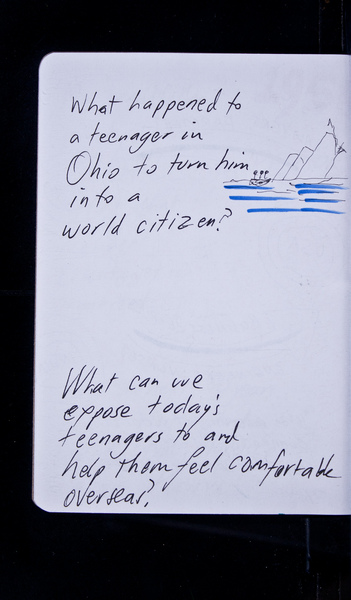 What happened to
a teenager in
Ohio to turn him
into a
world citizen?
What can we
expose today's
teenagers to and
help them feel comfortable
overseas?